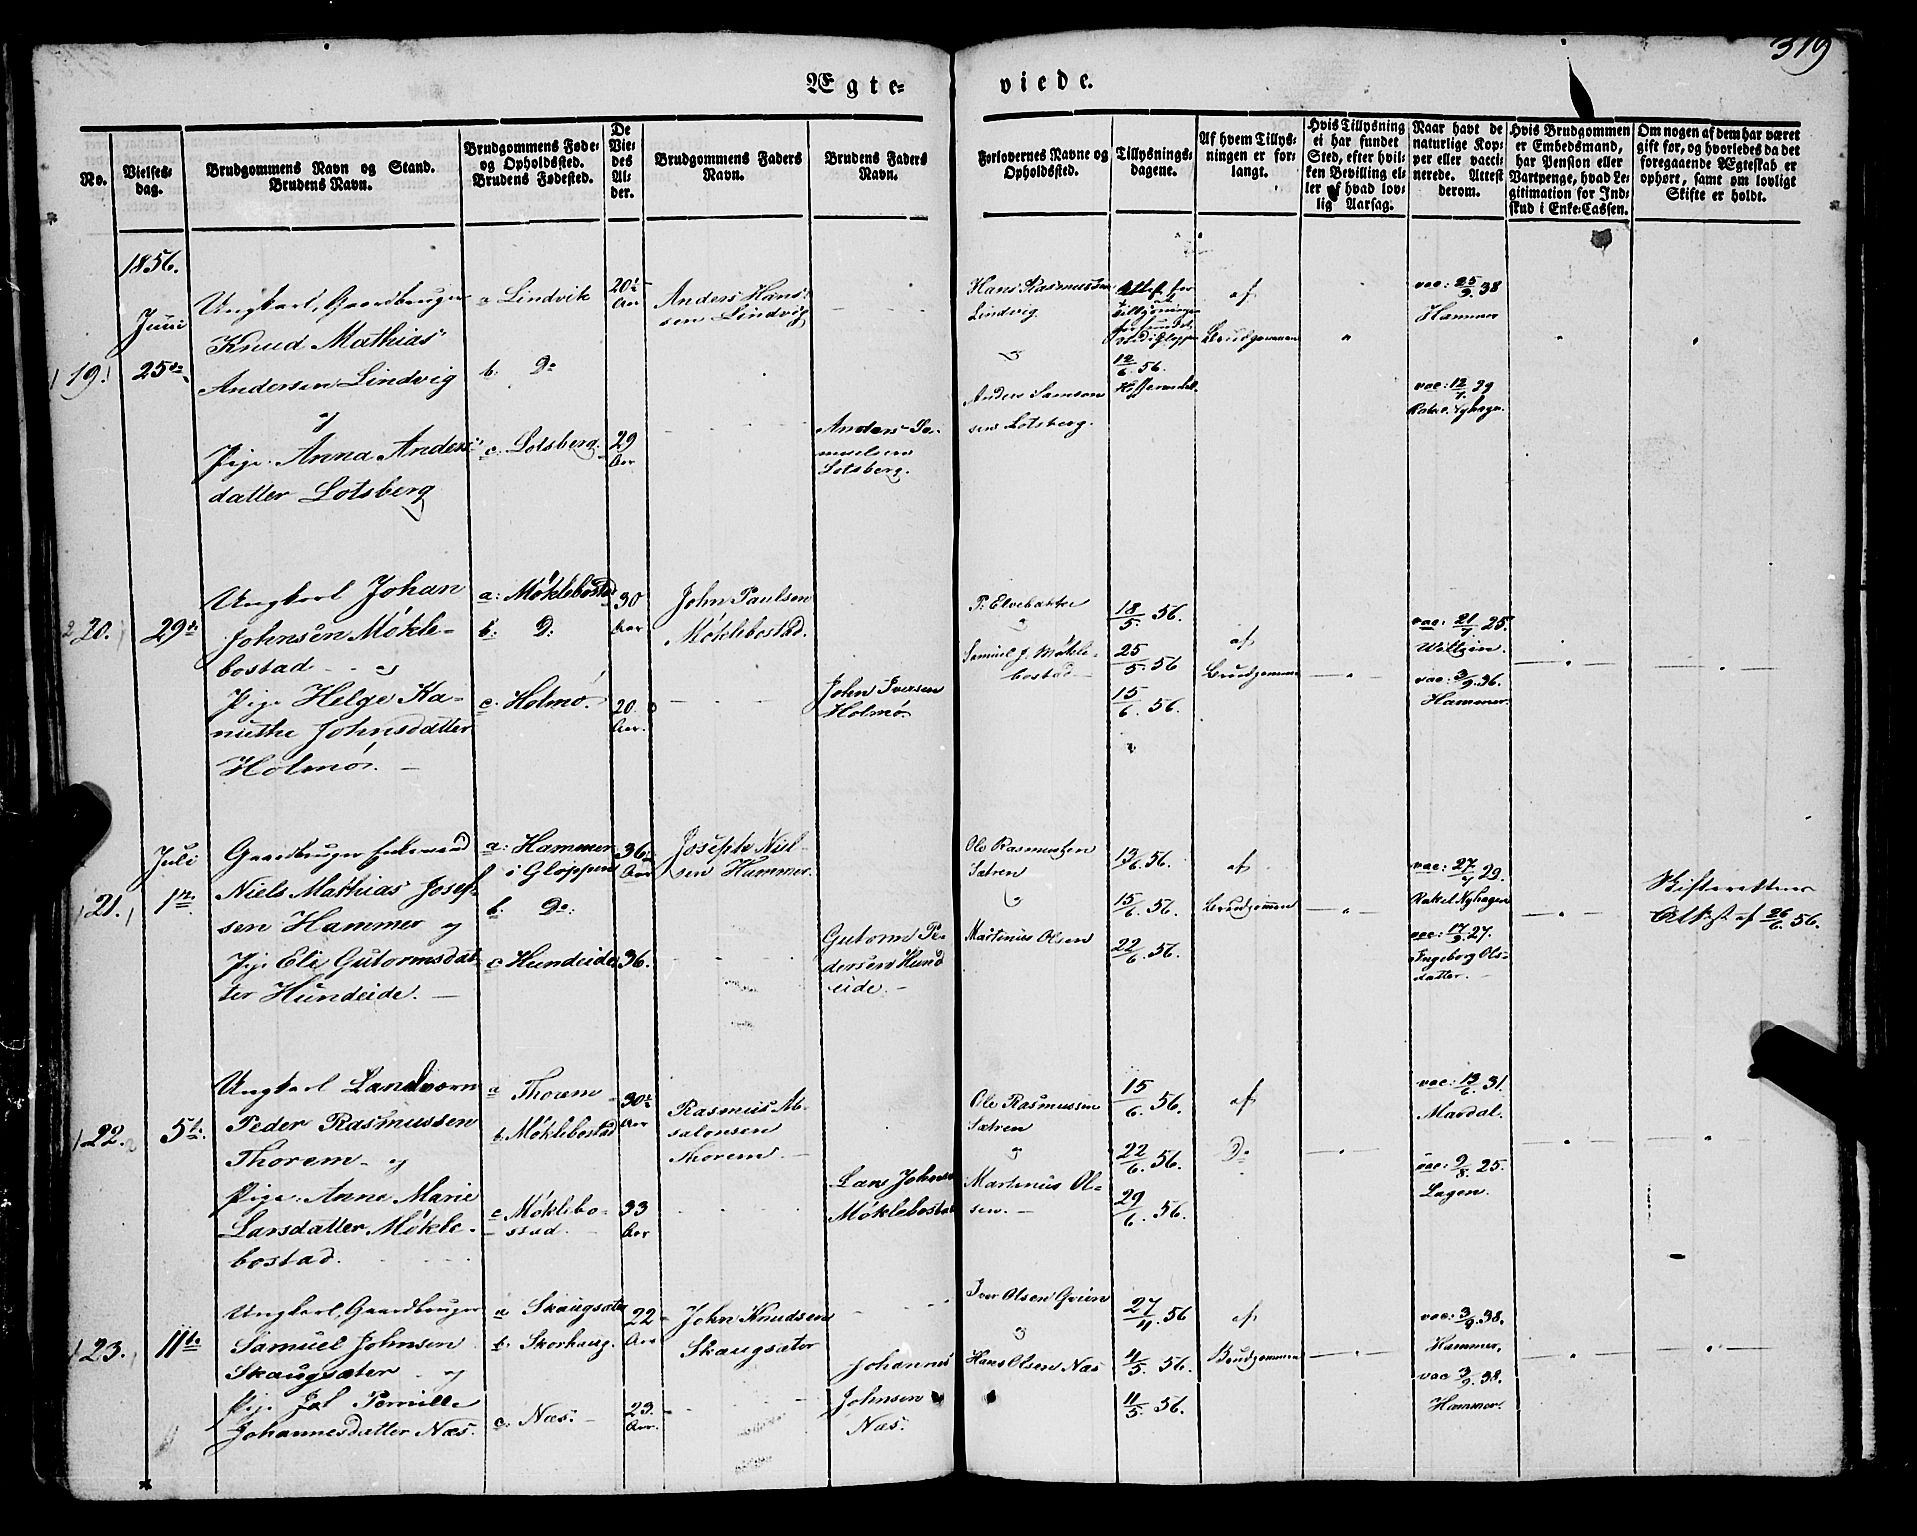 319
Ægte=
viede.
No.
Vielses=
dag.
Brudgommens Navn og Stand.
Brudens Navn.
Brudgommens Føde=
og Opholdssted.
Brudens Fødested.
De
Vie=
des
Al=
der.
Brudgommens Faders
Navn.
Brudens Faders
Navn.
Forlovernes Navne og
Opholdssted.
Tillysnings=
dagene.
Af hvem Tillys=
ningen er for=
langt.
Hvis Tillysning
ei har fundet
Sted, efter hvil=
ken Bevilling el=
ler af hvad lov=
lig Aarsag.
Naar havt de
naturlige Kop=
per eller vacci=
nerede. Attest
derom.
Hvis Brudgommen
er Embedsmand,
har Pension eller
Vartpenge, hvad Le=
gitimation for Ind=
skud i Enke=Cassen.
Om nogen af dem har været
gift før, og hvorledes da det
foregaaende Ægteskab er
ophørt, samt om lovligt
Skifte er holdt.
1856.
Juni
19.
25de
Ungkarl, Gaardbruger
Knud Mathias
Andersen Lindvig
og
Pige Anna Anders=
datter Lotsberg
a Lindvik
b: Do
c. Lotsberg.
20
Aar
29
Aar
Anders Han=
sen Lindvig
Anders Sa=
muelsen
Lotsberg.
Hans Rasmussen
Lindvig.
og
Anders Samson
sen Lotsberg.
Attest for
at
Tillysningen
12/6. 56.
af
Brudgommen
vac: 25/9. 38
Hammer
vac: 12/7. 29
Rakel Nyhagn.
20.
29de
Ungkarl Johan
Johnsen Mókle=
bostad og
Pige Helge Ka=
nuthe Johnsdatter
Holmó.
a: Móklebostad
b: Do
c. Holmó.
30
Aar
20
Aar.
John Paulsen
Móklebostad.
John Iversen
Holmó.
P. Elvebakke
og
Samuel J. Mókle=
bostad
18/5. 56.
25/5. 56
15/6. 56.
af
Brudgommen
vac: 21/7. 25.
Wiltzin.
vac: 3/9. 36.
Hammer.
Juli
21.
1ste.
Gaardbruger Enkemand
Niels Mathias Josef=
sen Hammer og
Pige Eli Gutormsdat=
ter Hundeide.
a: Hammer
i Gloppen
b: Do:
c Hundeide
36
Aar
36.
Joseph Niel=
sen Hammer.
Gutorm Pe=
dersen Hund
eide.
Ole Rasmussen
Sætren
og
Martinus Olsen
13/6. 56.
15/6. 56.
22/6. 56.
af
Brudgommen
vac: 27/7 29.
Rakel Nyhagen
vac: 17/9. 27.
Ingeborg Ols=
datter.
Skifterettens
Attest af 26/6. 56.
22.
5te.
Ungkarl Landværn
Peder Rasmussen
Thorem og
Pige: Anne Marie
Larsdatter Mókle=
bostad.
a Thorem
b. Móklebostad
c Móklebo=
stad.
30
Aar
33
Aar
Rasmus Ab=
salonsen
Thorem.
Lars Johns
Móklebostad
Ole Rasmussen
Sætren
og
Martinus Ol=
sen.
15/6. 56.
22/6. 56.
29/6. 56.
af
Do
vac: 13/6. 31.
Mardal.
vac: 9/8. 25.
Lagen.
23.
11te
Ungkarl, Gaardbruger
Samuel Johnsen
Skaugsæter og
Pige Pernille
Johannesdatter Næs.
a Skaugsæter
b. Skorhaug.
c. Næs.
22
Aar
23.
Aar.
John Knudsen
Skaugsæter
Johannes
Johnsen
Næs.
Iver Olsen Grøen
og
Hans Olsen Næs
27/4. 56
4/5. 56.
11/5. 56.
af
Brudgommen
vac: 3/9. 38.
Hammer,
vac 3/9. 38.
Hammer.